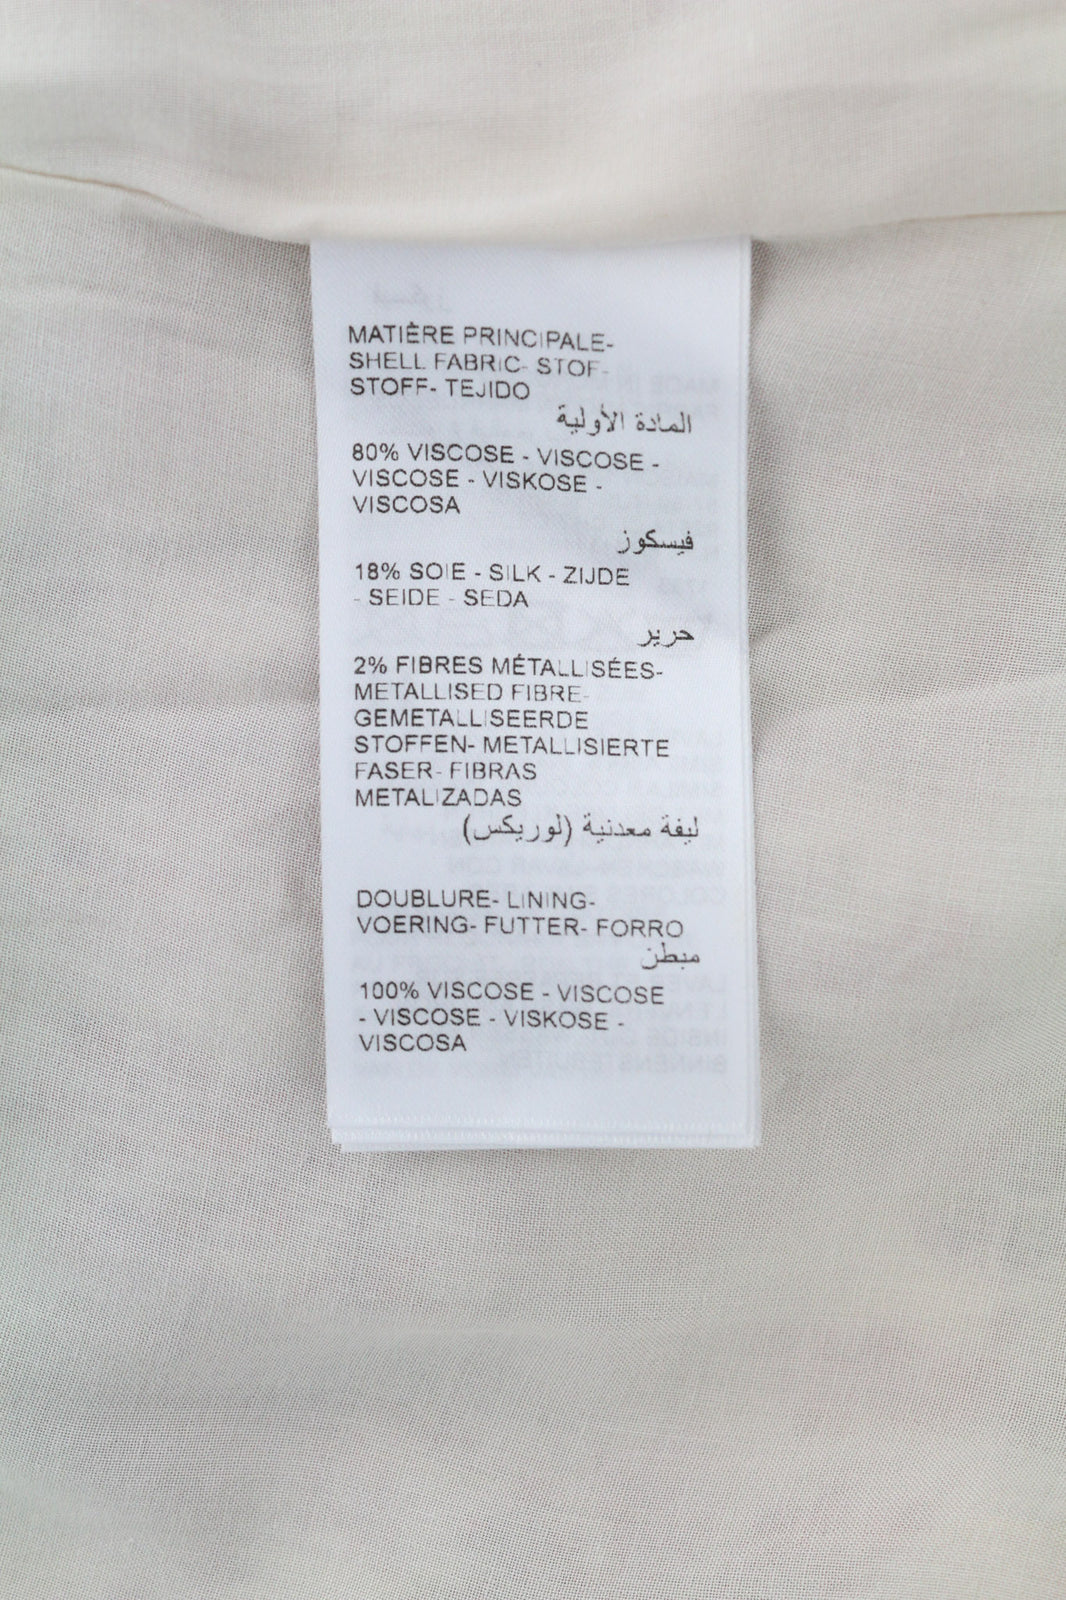 MATIÈRE PRINCIPALE-
SHELL FABRIC- STOF-
STOFF- TEJIDO
المادة الأولية
80% VISCOSE - VISCOSE -
VISCOSE - VISKOSE -
VISCOSA
فيسكوز
18% SOIE - SILK - ZIJDE
- SEIDE - SEDA
حرير
2% FIBRES MÉTALLISÉES-
METALLISED FIBRE-
GEMETALLISEERDE
STOFFEN- METALLISIERTE
FASER- FIBRAS
METALIZADAS
ليفة معدنية (لوريكس)
DOUBLURE- LINING-
VOERING- FUTTER- FORRO
مبطن
100% VISCOSE - VISCOSE
- VISCOSE - VISKOSE -
VISCOSA